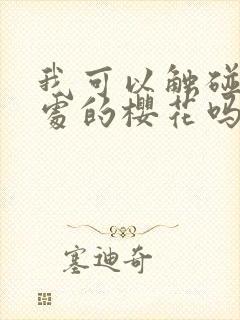 我可以触碰
处的樱花吗
塞迪奇